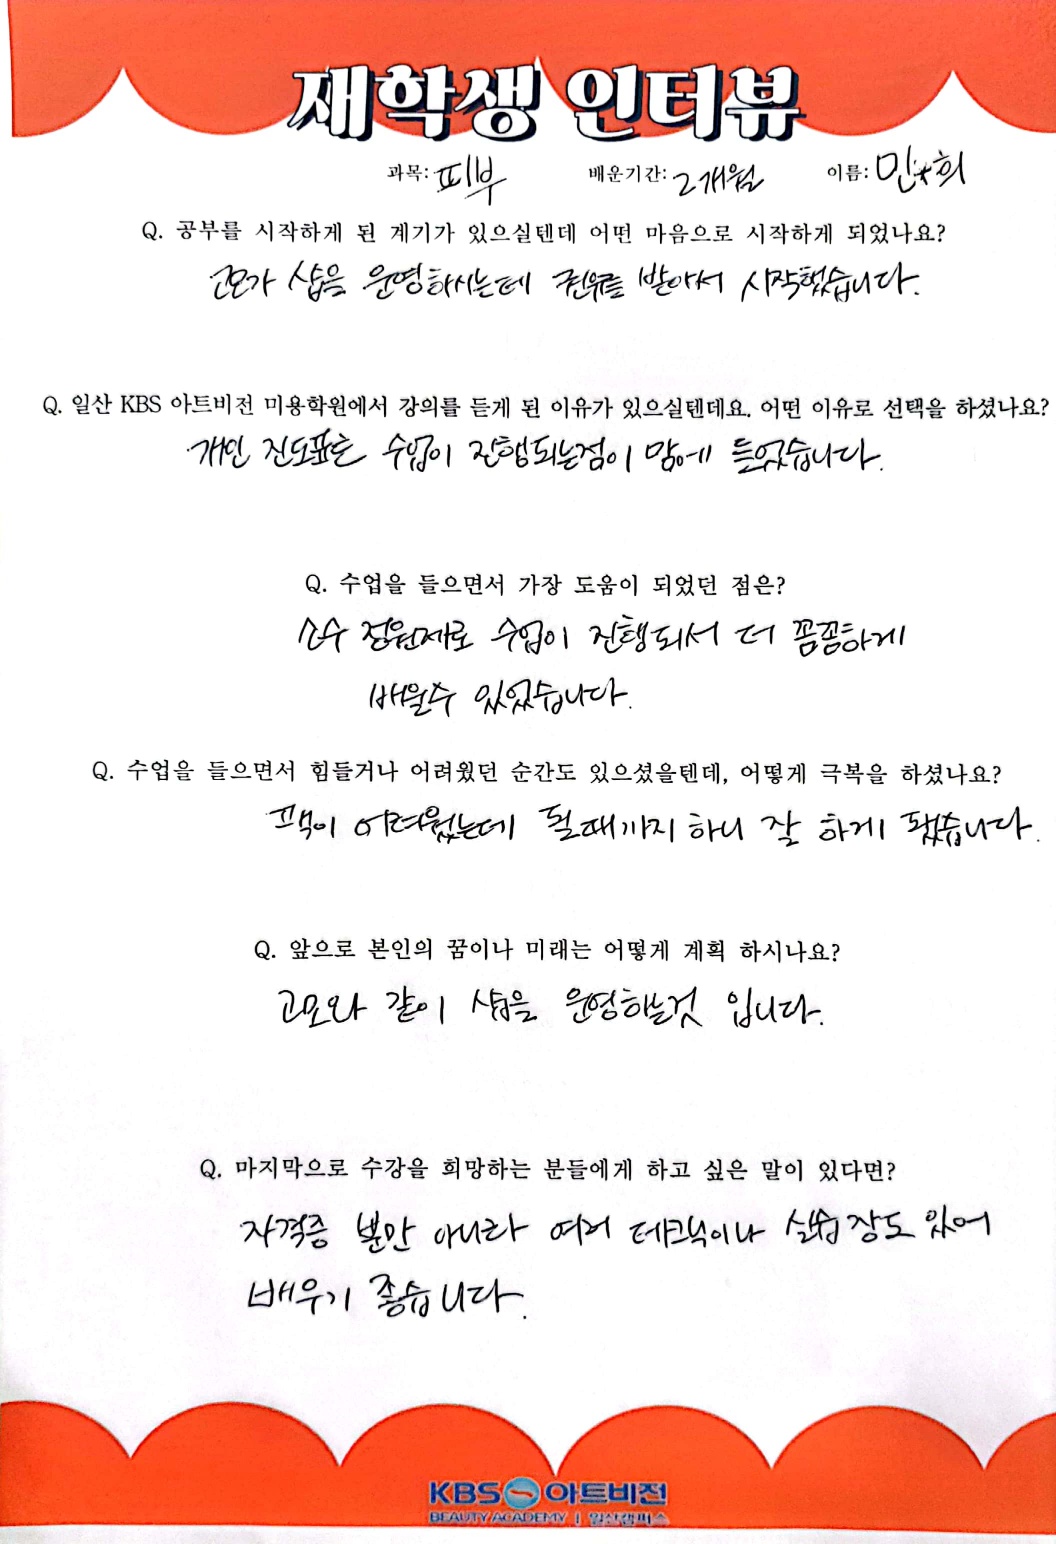 재학생 인터뷰
과목: 피부 배운기간: 2개월 이름: 민*희
Q. 공부를 시작하게 된 계기가 있으실텐데 어떤 마음으로 시작하게 되었나요?
고모가 샵을 운영하시는데 권유를 받아서 시작했습니다.
Q. 일산 KBS 아트비전 미용학원에서 강의를 듣게 된 이유가 있으실텐데요. 어떤 이유로 선택을 하셨나요?
개인 진도표로 수업이 진행되는점이 맘에 들었습니다.
Q. 수업을 들으면서 가장 도움이 되었던 점은?
소수 정원제로 수업이 진행되서 더 꼼꼼하게
배울수 있었습니다.
Q. 수업을 들으면서 힘들거나 어려웠던 순간도 있으셨을텐데, 어떻게 극복을 하셨나요?
팩이 어려웠는데 될때까지 하니 잘 하게 됐습니다.
Q. 앞으로 본인의 꿈이나 미래는 어떻게 계획 하시나요?
고모와 같이 샵을 운영하는것 입니다.
Q. 마지막으로 수강을 희망하는 분들에게 하고 싶은 말이 있다면?
자격증 뿐만 아니라 여러 테크닉이나 실습장도 있어
배우기 좋습니다.
KBS 아트비전
BEAUTY ACADEMY | 일산캠퍼스